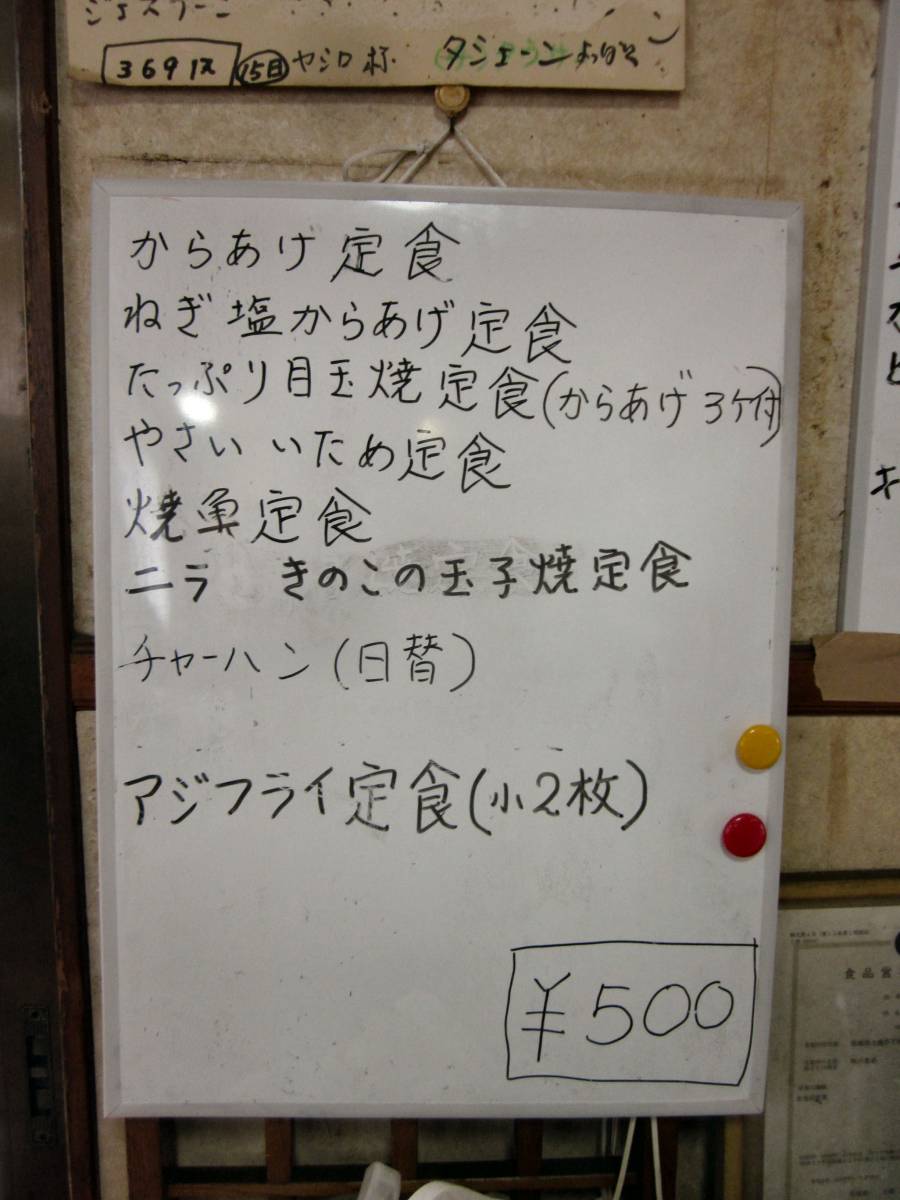 ジェスターン
3691ス 15日 ヤシロ杯
からあげ定食
ねぎ塩からあげ定食
たっぷり目玉焼定食(からあげ3ケ付)
やさいいため定食
焼魚定食
ニラ きのこの玉子焼定食
チャーハン(日替)
アジフライ定食(小2枚)
¥500
食品営